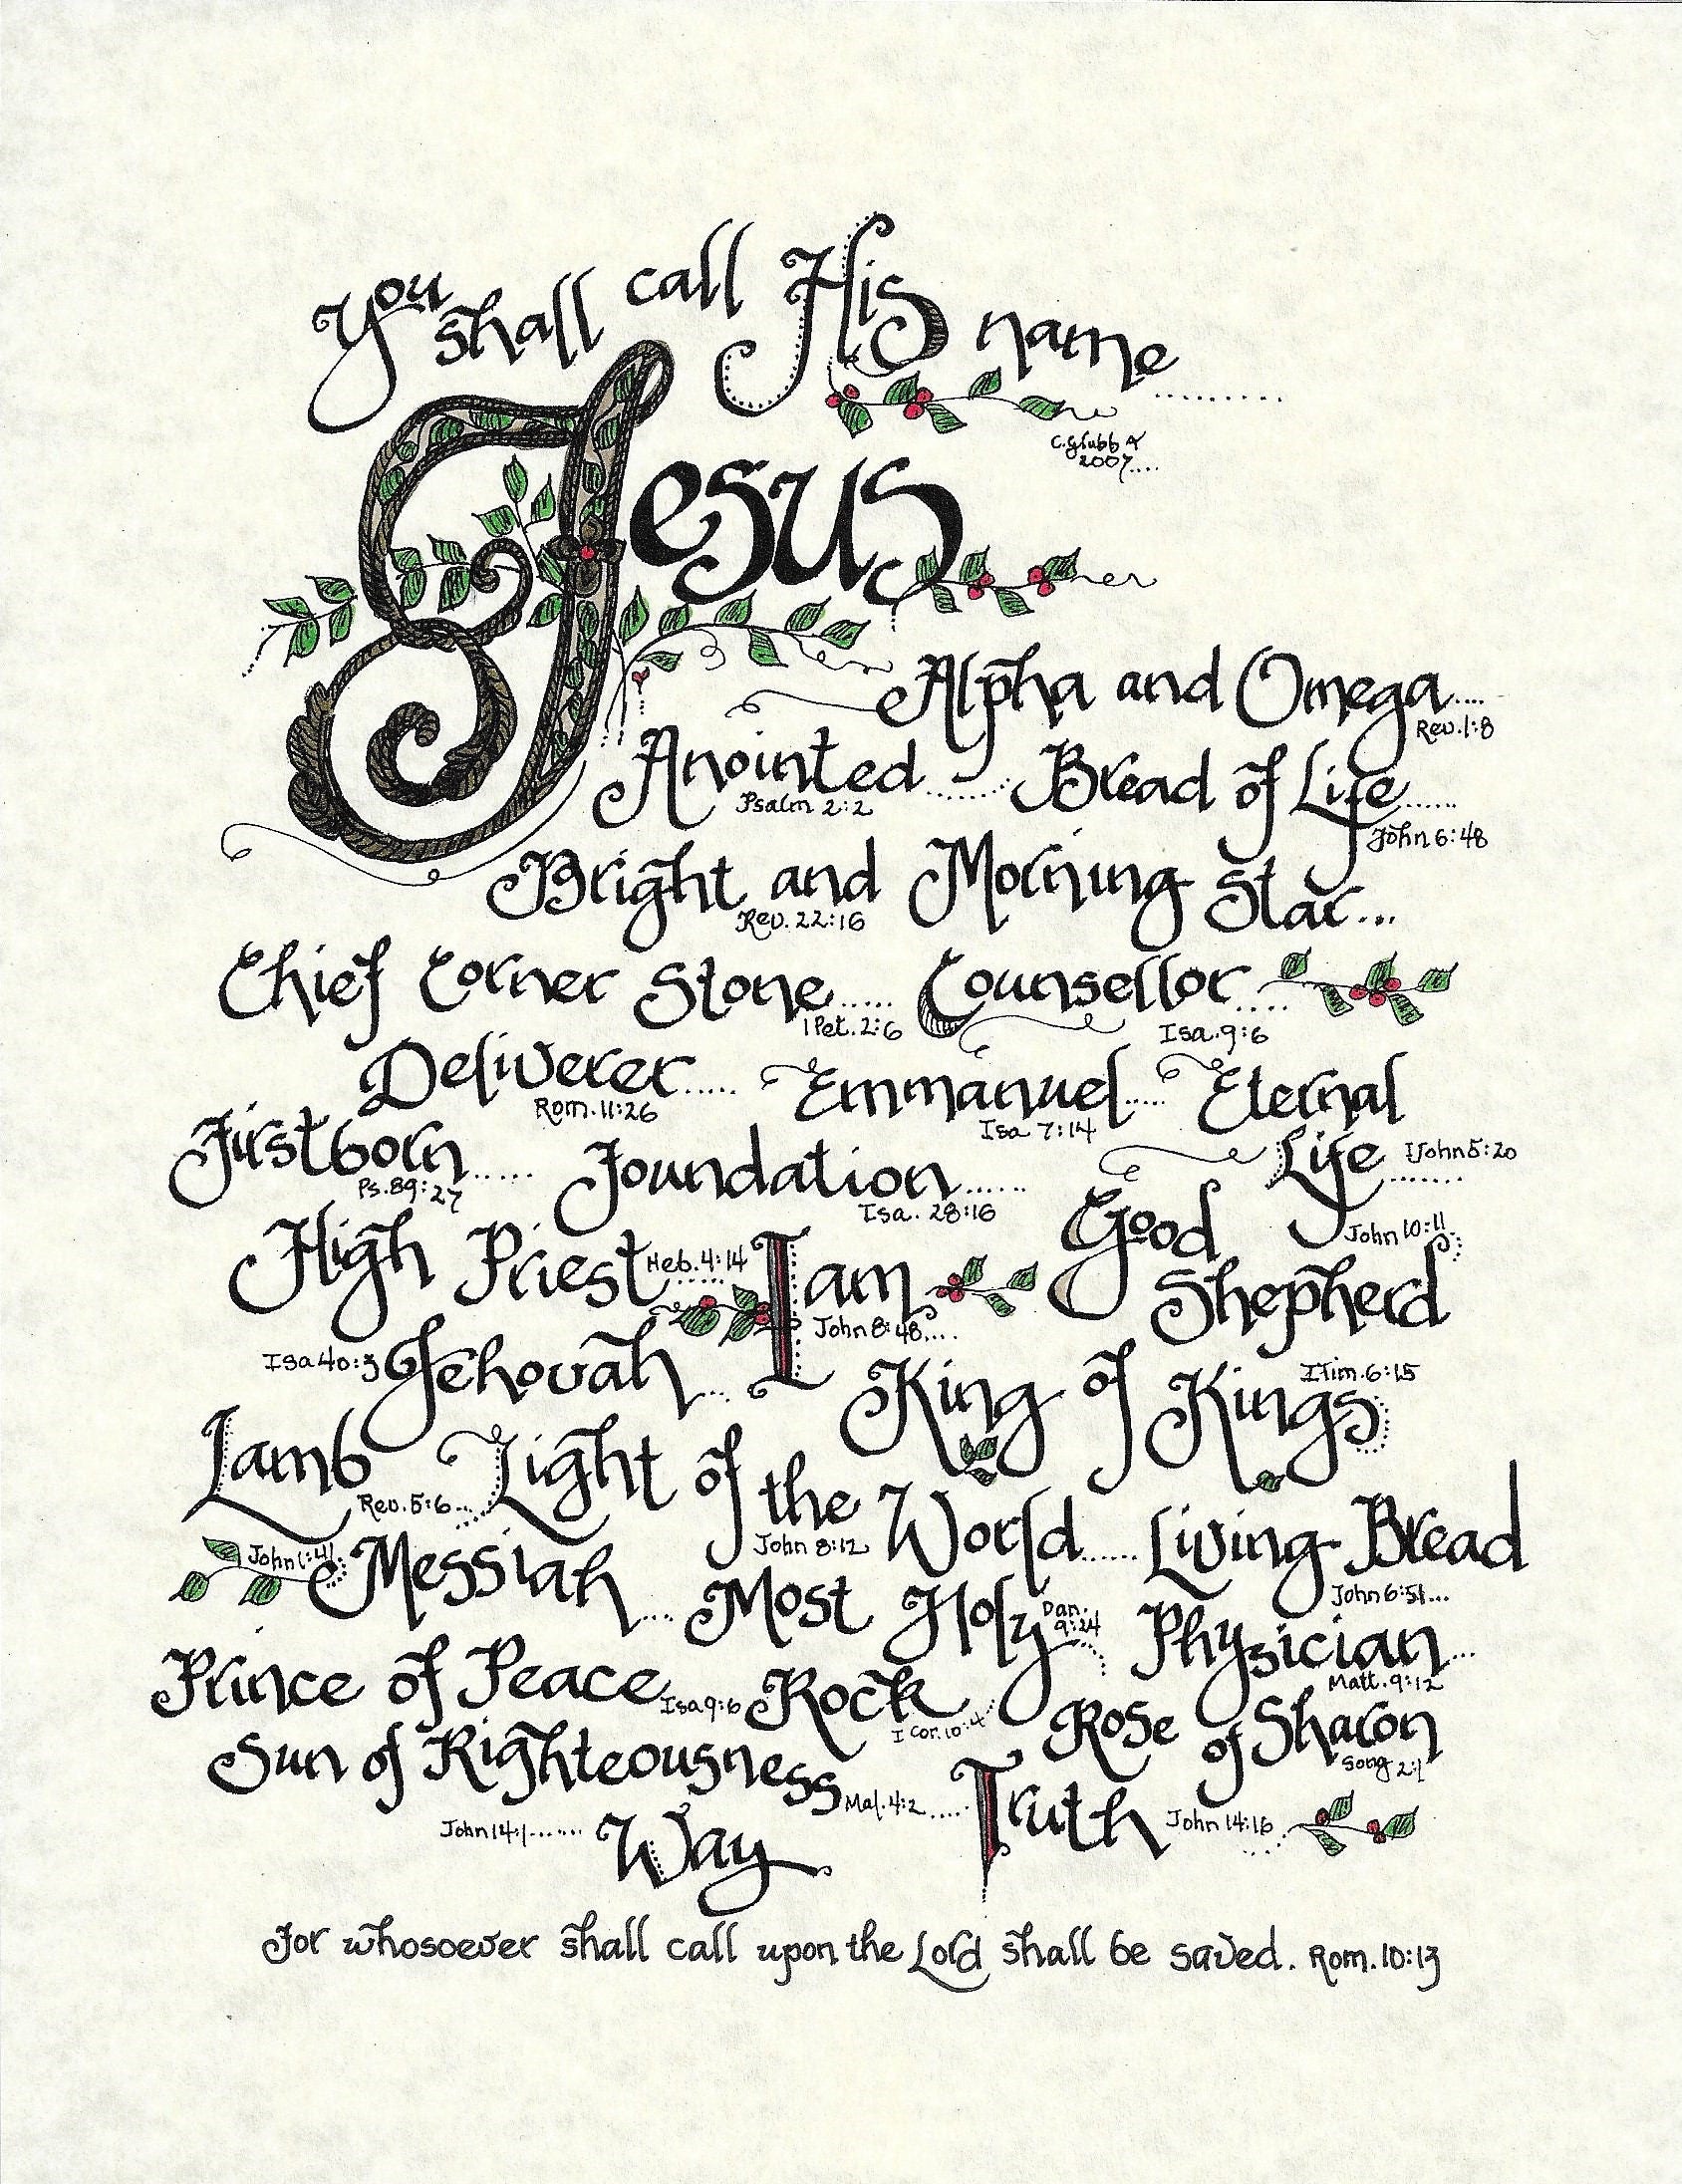 You shall call His name.........
C. Grubb
2007....
Jesus
Alpha and Omega....
Rev. 1:8
Anointed....... Bread of Life......
Psalm 2:2 John 6:48
Bright and Morning Star...
Rev. 22:16
Chief Corner Stone..... Counsellor....
1 Pet. 2:6 Isa. 9:6
Deliverer..... Emmanuel..... Eternal
Rom. 11:26 Isa 7:14
Life 1John 5:20
Firstborn...... Foundation......
Ps. 89:27 Isa. 28:16
High Priest Heb. 4:14 I am Good
John 10:11
Shepherd
John 8:48....
Isa 40:3 Jehovah... King of Kings
I Tim. 6:15
Lamb Light of the World...... Living Bread
Rev. 5:6... John 8:12 John 6:51...
John 1:41 Messiah.... Most Holy Dan. 9:24 Physician...
Matt. 9:12
Prince of Peace Isa 9:6 Rock Rose of Sharon
I Cor. 10:4 Song 2:1
Sun of Righteousness Mal. 4:2..... Truth John 14:16
John 14:1....... Way
For whosoever shall call upon the Lord shall be saved. Rom. 10:13